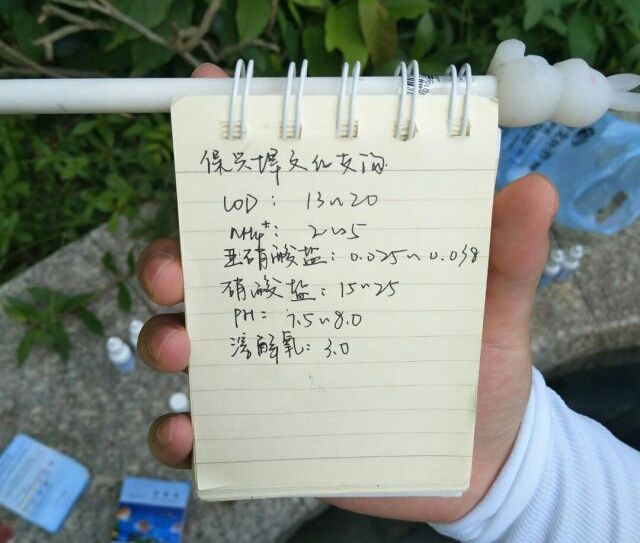 保兴埠文化支河
COD: 13~20
NH4+: 2~5
亚硝酸盐: 0.025~0.038
硝酸盐: 15~25
PH: 7.5~8.0
溶解氧: 3.0